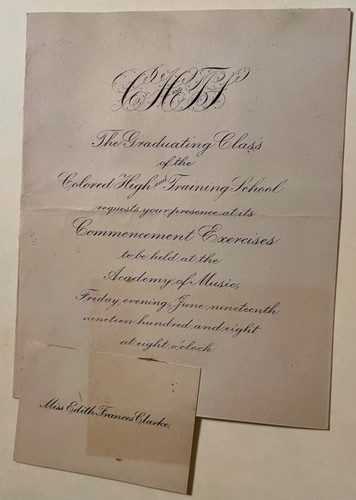 C H and T S
The Graduating Class
of the
Colored High and Training School
requests your presence at its
Commencement Exercises
to be held at the
Academy of Music,
Friday evening, June nineteenth
nineteen hundred and eight
at eight o'clock
Miss Edith Frances Clarke.